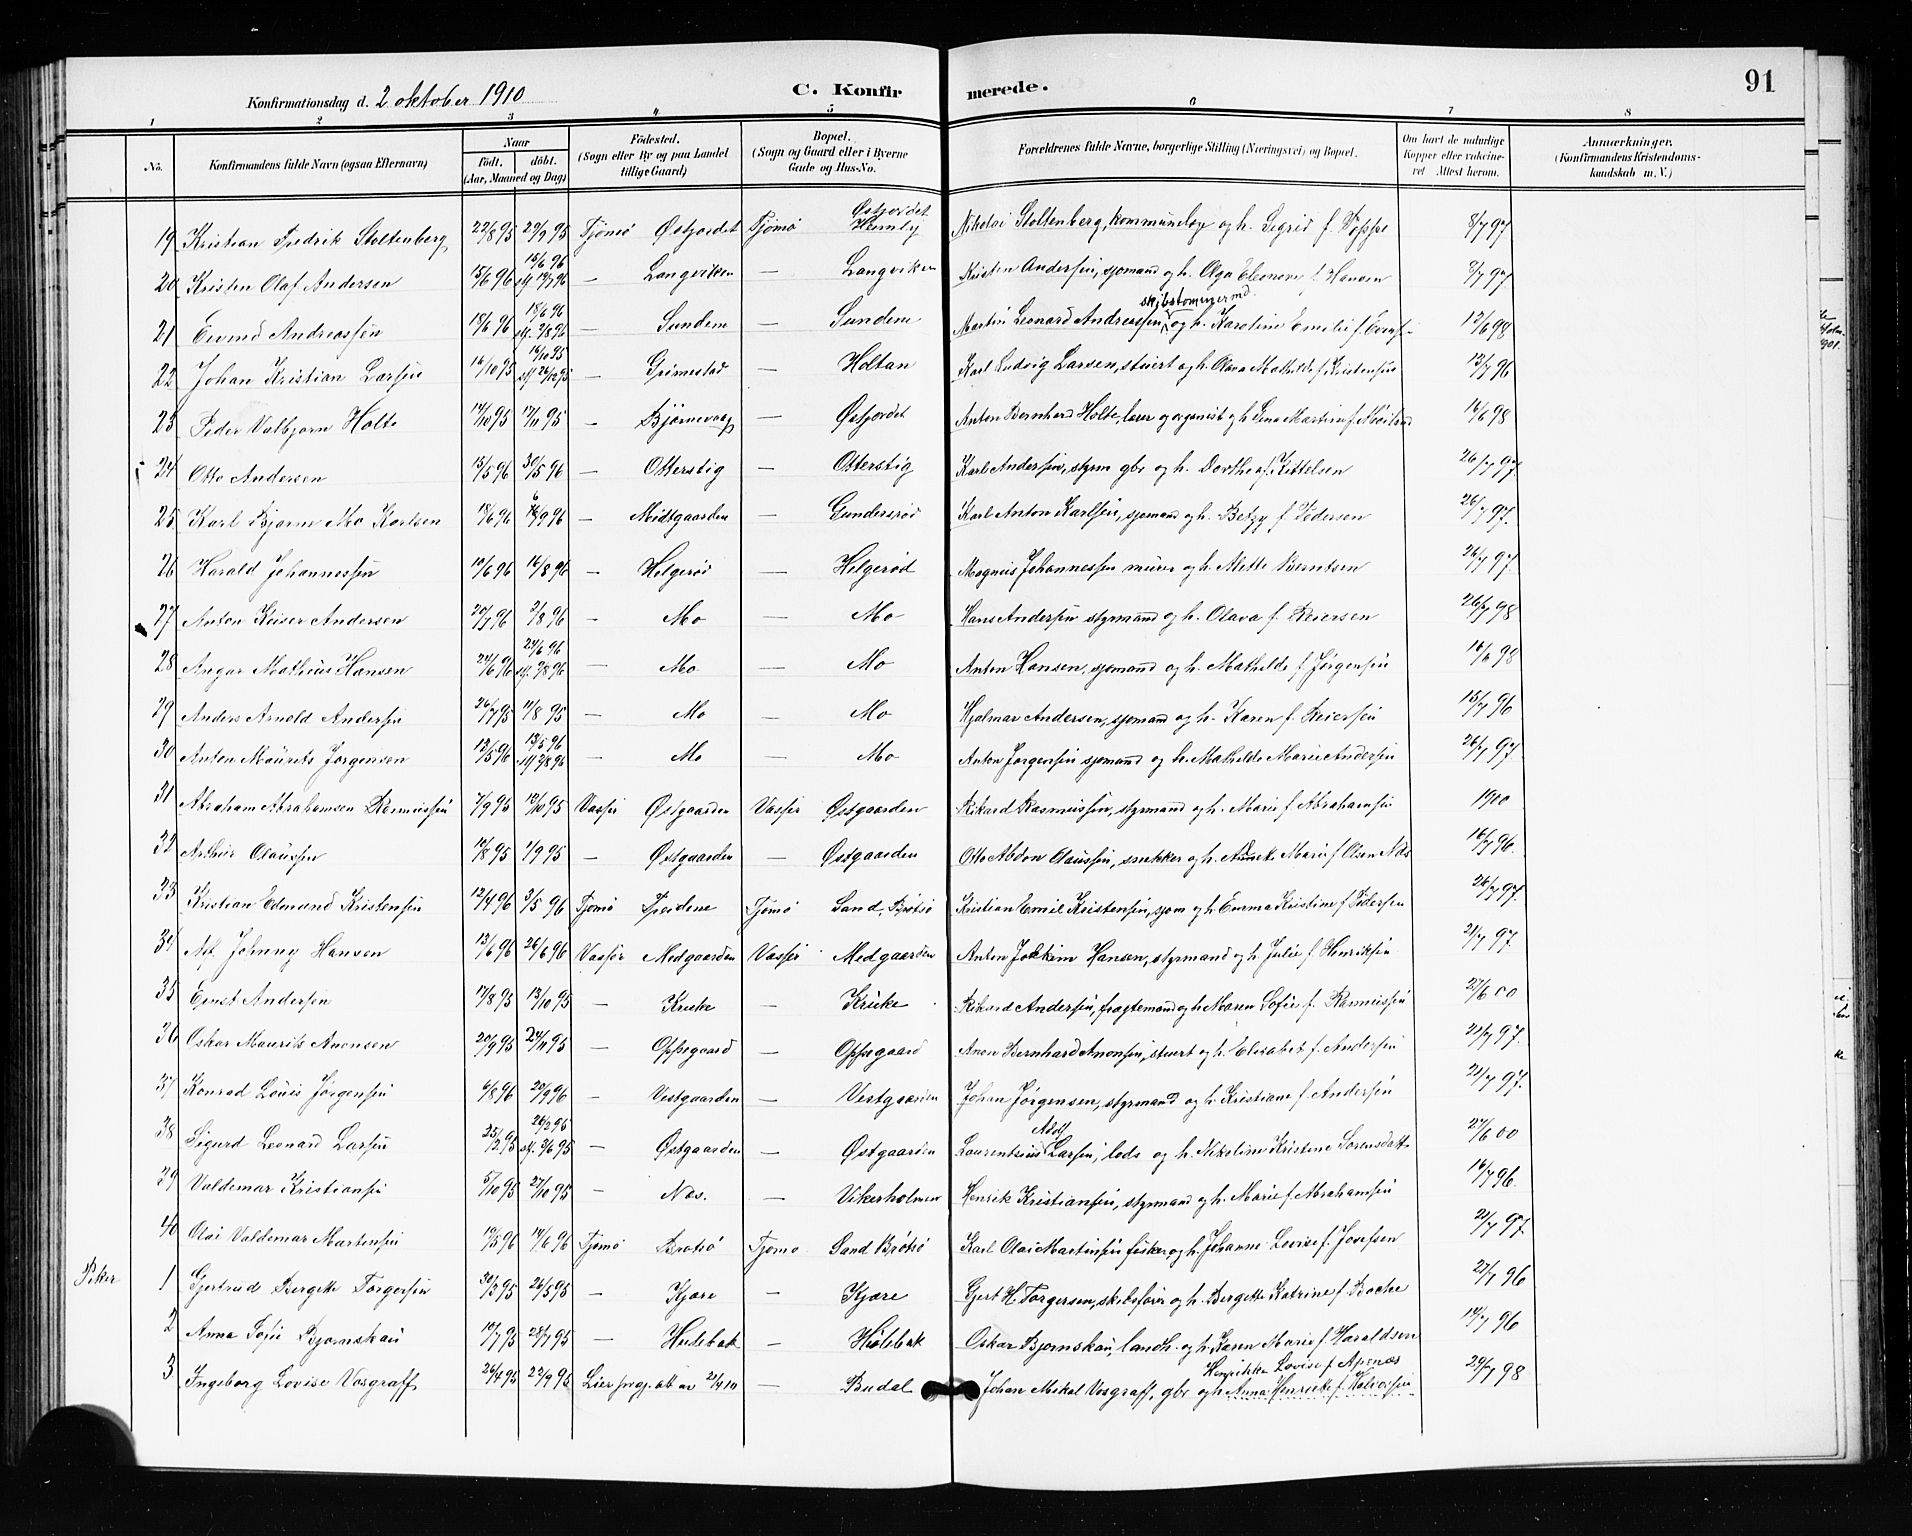 91
Konfirmationsdag d. 2 oktober 1910 C. Konfirmerede.
1 2 3 4 5 6 7 8
No. Konfirmandens fulde Navn (ogsaa Efternavn) Naar født. døbt. (Aar, Maaned og Dag) Fødested. (Sogn eller By og paa Landet tillige Gaard) Bopæl. (Sogn og Gaard eller i Byerne Gade og Hus-No. Forældrenes fulde Navne, borgerlige Stilling (Næringsvei) og Bopæl. Om havt de naturlige Kopper eller vakcineret Attest herom. Anmærkninger. (Konfirmandens Kristendomskundskab m. V.)
19 Kristian Fredrik Stoltenberg 22/8 95 29/9 95 Tjømø Østjordet Tjømø Østjordet Heimly Nikolai Stoltenberg, kommunelæg og h. Sigrid f. Foppe 8/7 97
20 Kristen Olaf Andersen 15/6 96 15/6 96 st. 19/7 96 — Langviken — Langviken Kristen Andersen, sjømand og h. Olga Eleonore f. Hansen 8/7 97
21 Eivind Andreassen 18/6 96 18/6 96 st. 2/8 96 — Sundene — Sundene Martin Leonard Andreassen, skibstømmermd. og h. Karoline Emilie f. Evens. 12/6 98
22 Johan Kristian Larsen 16/10 95 16/10 95 st. 26/12 95 — Grimestad — Holtan Karl Ludvig Larsen, stuert og h. Olava Mathilde f. Kristensen 13/7 96
23 Peder Valbjørn Holte 14/10 95 17/11 95 — Bjørnevaag — Østjordet Anton Bernhard Holte, lærer og organist og h. Lina Martine f. 16/6 98
24 Otto Andersen 15/5 96 30/5 96 — Otterstig — Otterstig Karl Andersen, styrm gbr. og h. Dorthea f. Kittelsen 26/7 97.
25 Karl Bjarne Mo Karlsen 18/6 96 6/9 96 — Midtgaarden — Gundersrød Karl Anton Karlsen, sjømand og h. Betzy f. Pedersen 26/7 97.
26 Harald Johannessen 10/6 96 16/8 96 — Helgerød — Helgerød Magnus Johannessen murer og h. Mette Berntsen 26/7 97.
27 Anton Keiser Andersen 20/7 96 2/8 96 — Mo — Mo Hans Andersen styrmand og h. Olava f. Reiersen 26/7 98
28 Ansgar Matheus Hansen 24/6 96 24/6 96 st. 2/8 96 — Mo — Mo Anton Hansen, sjømand og h. Mathilde f. Jørgensen 16/6 98
29 Anders Arnold Andersen 26/7 95 11/8 95 — Mo — Mo Hjalmar Andersen, sjømand og h. Karen f. Reiersen 15/7 96
30 Anton Maurits Jørgensen 13/5 96 13/5 96 st. 2/8 96 — Mo — Mo Anton Jørgensen sjømand og h. Mathilde Marie Andersen 26/7 97
31 Abraham Abrahamsen Rasmussen 7/9 95 13/10 95 Vasser Østgaarden Vasser Østgaarden Rikard Rasmussen, styrmand og h. Marie f. Abrahamsen 1900
32 Arthur Olaussen 10/8 95 1/9 95 — Østgaarden — Østgaarden Otto Abdon Olaussen, snekker og h. Anneke Marie f. Olsen Næs 16/7 96.
33 Kristian Edmund Kristensen 12/4 96 3/5 96 Tjømø Treidene Tjømø Sand, Brøtsø Kristian Emil Kristensen, sjøm og h. Emma Kristine f. Pedersen 26/7 97.
34 Alf Johnny Hansen 13/6 96 26/6 96 Vasser Medgaarden Vasser Medgaarden Anton Jokkim Hansen, styrmand og h. Julie f. Henriksen 21/7 97.
35 Ernst Andersen 17/8 95 13/10 95 — Kruke — Kruke Rikard Andersen, fragtemand og h. Maren Sofie f. Rasmussen 27/6 00
36 Oskar Maurits Anonsen 20/9 95 24/11 95 — Oppegaard — Oppegaard Anon Bernhard Anonsen, stuert og h. Elisabet f. Andersen 21/7 97.
37 Konrad Louis Jørgensen 6/8 96 20/9 96 — Vestgaarden — Vestgaarden Johan Jørgensen, styrmand og h. Kristiane f. Andersen 21/7 97.
38 Sigurd Leonard Larsen 25/2 95 26/2 95 st. 2/6 95 — Østgaarden — Østgaarden Laurentsius Adolf Larsen, lods og h. Nikoline Kristine Sørensdatt. 27/6 00
39 Valdemar Kristiansen 5/10 95 27/10 95 — Næs. — Vikerholmen Henrik Kristiansen, styrmand og h. Marie f. Abrahamsen 16/7 96.
40 Olai Valdemar Martensen 19/5 96 14/6 96 Tjømø Brøtsø Tjømø Sand Brøtsø Karl Olai Martinsen fisker og h. Johanne Lovise f. Josefsen 21/7 97.
Piker 1 Gjertrud Bergette Torgersen 30/3 95 26/5 95 — Kjære — Kjære Gjert H. Torgersen, skibsfører og h. Bergette Katrine f. Bache 27/7 96
2 Anna Sofie Bjørnskau 10/7 95 28/7 95 — Hulebak — Hulebak Oskar Bjørnskau, landh. og h. Karen Marie f. Haraldsen 14/7 96
3 Ingeborg Lovise Vosgraff 26/4 95 22/9 95 Lier prgj. att. av 21/4 10 — Budal Johan Mikal Vosgraff, gbr. og h. Henrikke Lovise f. Apenæs Anna Henrikke f. Halvorsen 29/7 98